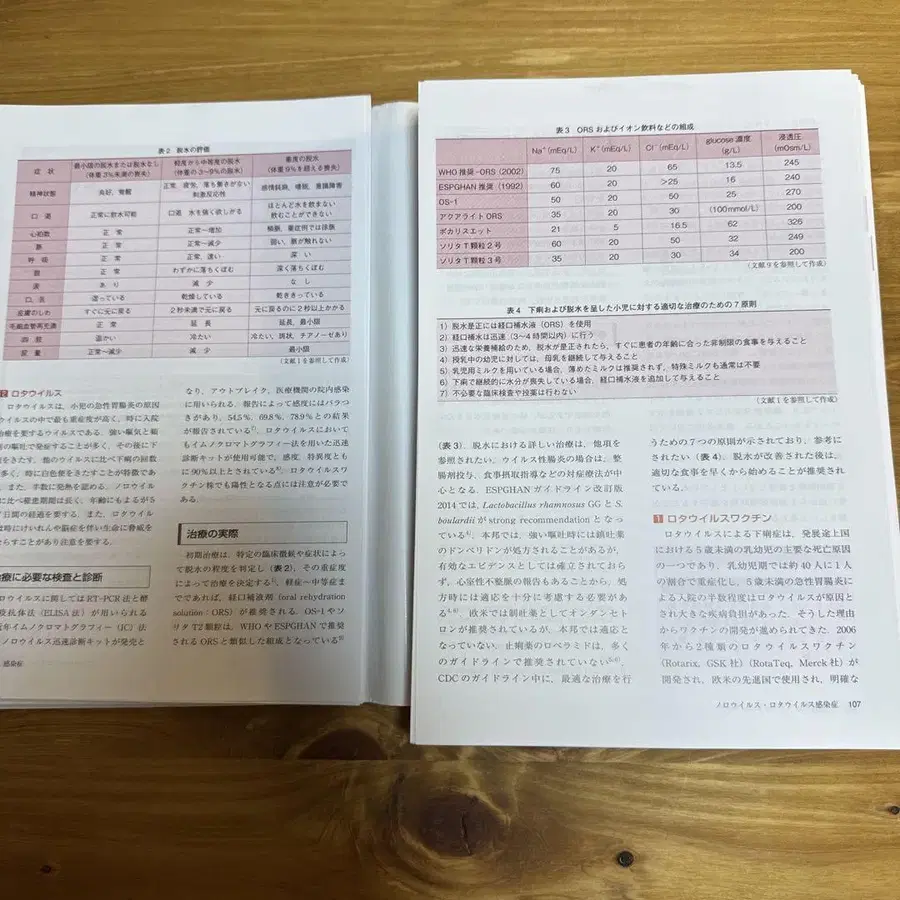 表2 脱水の評価
症状 最小限の脱水または脱水なし（体重3%未満の喪失） 軽度から中等度の脱水（体重の3〜9%の脱水） 重度の脱水（体重9%を超える喪失）
精神状態 良好，覚醒 正常，疲労，落ち着きがない 刺激反応性 感情鈍麻，嗜眠，意識障害
口渇 正常に飲水可能 口渇 水を強く欲しがる ほとんど水を飲まない 飲むことができない
心拍数 正常 正常〜増加 頻脈，重症例では徐脈
脈 正常 正常〜減少 弱い，脈が触れない
呼吸 正常 正常，速い 深い
眼 正常 わずかに落ちくぼむ 深く落ちくぼむ
涙 あり 減少 なし
口，舌 湿っている 乾燥している 乾ききっている
皮膚のしわ すぐに元に戻る 2秒未満で元に戻る 元に戻るのに2秒以上かかる
毛細血管再充満 正常 延長 延長，最小限
四肢 温かい 冷たい 冷たい，斑状，チアノーゼあり
尿量 正常〜減少 減少 最小限
（文献1を参照して作成）
2 ロタウイルス
ロタウイルスは，小児の急性胃腸炎の原因
ウイルスの中で最も重症度が高く，時に入院
治療を要するウイルスである．強い嘔気と頻
回の嘔吐で発症することが多く，その後に下
痢をきたす．他のウイルスに比べ下痢の回数
も多く，時に白色便をきたすことが特徴であ
る．また，半数に発熱を認める．ノロウイル
スに比べ罹患期間は長く，年齢にもよるが5
〜7日間の経過を要する．また，ロタウイルス
は時にけいれんや脳症を伴い生命に脅威を
もたらすことがあり注意を要する．
治療に必要な検査と診断
ノロウイルスに関してはRT-PCR法と酵
素抗体法（ELISA法）が用いられる
近年イムノクロマトグラフィー（IC）法
ノロウイルス迅速診断キットが発売と
感染症
なり，アウトブレイク，医療機関の院内感染
に用いられる．報告によって感度にはバラつ
きがあり，54.5%，69.8%，78.9%との結果
が報告されている．ロタウイルスにおいて
もイムノクロマトグラフィー法を用いた迅速
診断キットが使用可能で，感度，特異度とも
に90%以上とされている．ロタウイルスワ
クチン株でも陽性となる点には注意が必要で
ある．
治療の実際
初期治療は，特定の臨床徴候や症状によっ
て脱水の程度を判定し（表2），その重症度
によって治療を決定する．軽症〜中等症ま
でであれば，経口補液剤（oral rehydration
solution：ORS）が推奨される．OS-1やソ
リタT2顆粒は，WHOやESPGHANで推奨
されるORSと類似した組成となっている
表3 ORSおよびイオン飲料などの組成
Na⁺(mEq/L) K⁺(mEq/L) Cl⁻(mEq/L) glucose濃度(g/L) 浸透圧(mOsm/L)
WHO推奨-ORS(2002) 75 20 65 13.5 245
ESPGHAN推奨(1992) 60 20 >25 16 240
OS-1 50 20 50 25 270
アクアライトORS 35 20 30 (100mmol/L) 200
ポカリスエット 21 5 16.5 62 326
ソリタT顆粒2号 60 20 50 32 249
ソリタT顆粒3号 35 20 30 34 200
（文献9を参照して作成）
表4 下痢および脱水を呈した小児に対する適切な治療のための7原則
1）脱水是正には経口補水液（ORS）を使用
2）経口補水は迅速（3〜4時間以内）に行う
3）迅速な栄養補給のため，脱水が是正されたら，すぐに患者の年齢に合った非制限の食事を与えること
4）授乳中の幼児に対しては，母乳を継続して与えること
5）乳児用ミルクを用いている場合，薄めたミルクは推奨されず，特殊ミルクも通常は不要
6）下痢で継続的に水分が喪失している場合，経口補水液を追加して与えること
7）不必要な臨床検査や投薬は行わない
（文献1を参照して作成）
（表3）．脱水における詳しい治療は，他項を
参照されたい．ウイルス性腸炎の場合は，整
腸剤投与，食事摂取指導などの対症療法が中
心となる．ESPGHANガイドライン改訂版
2014では，Lactobacillus rhamnosus GGとS.
boulardiiがstrong recommendationとなっ
ている．本邦では，強い嘔吐時には鎮吐薬
のドンペリドンが処方されることがあるが，
有効なエビデンスとしては確立されておら
ず，心室性不整脈の報告もあることから，処
方時には適応を十分に考慮する必要がある
4,6)．欧米では制吐薬としてオンダンセト
ロンが推奨されているが，本邦では適応と
なっていない．止痢薬のロペラミドは，多く
のガイドラインで推奨されていない．
CDCのガイドライン中に，最適な治療を行
うための7つの原則が示されており，参考に
されたい（表4）．脱水が改善された後は，
適切な食事を早くから始めることが推奨され
ている．
1 ロタウイルスワクチン
ロタウイルスによる下痢症は，発展途上国
における5歳未満の乳幼児の主要な死亡原因
の一つであり，乳幼児期では約40人に1人
の割合で重症化し，5歳未満の急性胃腸炎によ
る入院の半数程度はロタウイルスが原因と
され大きな疾病負担があった．そうした理由
からワクチンの開発が進められてきた．2006
年から2種類のロタウイルスワクチン
（Rotarix，GSK社）（RotaTeq，Merck社）が
開発され，欧米の先進国で使用され，明確な
ノロウイルス・ロタウイルス感染症 107